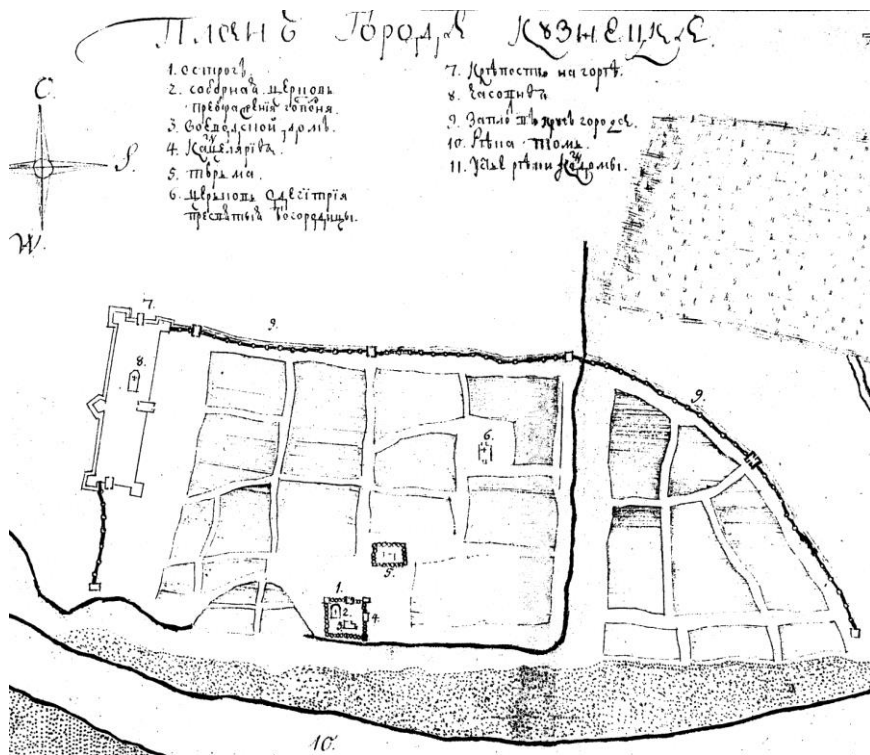 Планъ Города Кузнецка.
1. острогъ.
2. соборная церковь
преображенїя гспдня.
3. Воеводской домъ.
4. Канцелярїя.
5. тюрьма.
6. церковь одегітрїя
пресвятыя богородицы.
7. Крѣпость на горѣ.
8. часовня
9. Заплотъ кругъ города.
10. Рѣка томь.
11. Устье рѣки Кондомы.
С.
S.
W.
7.
8.
9.
9.
6.
5.
1.
2.
3.
4.
10.